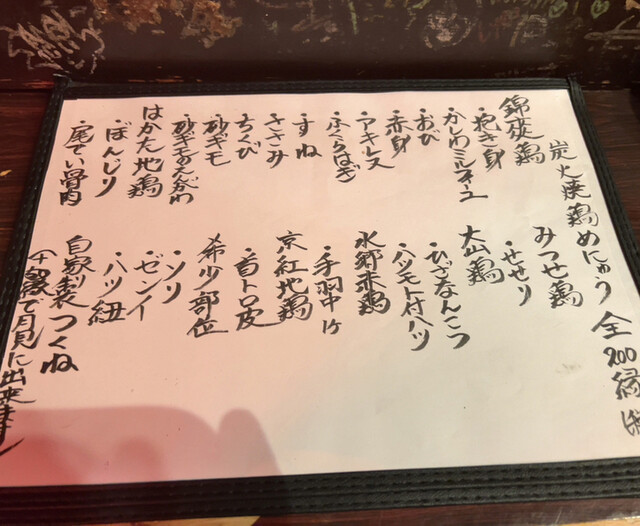 炭火焼鶏めにゅう 全200縁
錦爽鶏
・抱き身
・かしわミルネーユ
・おび
・赤身
・アキレス
・ふくらはぎ
・すね
・ささみ
・ちくび
・砂ギモ
・砂ギモのえんがわ
はかた地鶏
・ぼんじり
・尾てい骨肉
みつせ鶏
・せせり
大山鶏
・ひざなんこつ
・ハツモト付ハツ
水郷赤鶏
・手羽中
京紅地鶏
・首トロ皮
希少部位
・ソリ
・ゼンイ
・ハツ紐
自家製つくね
で月見に出来ます